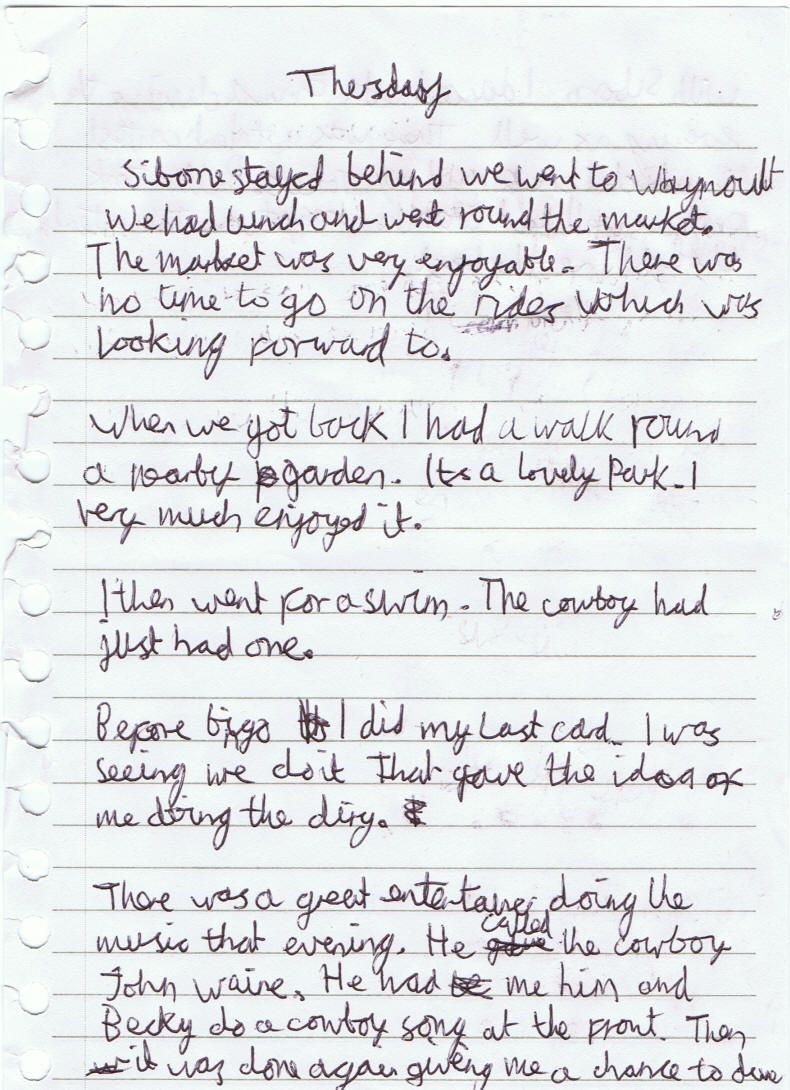 Thersday
Siborne stayed behind we went to Waymoult
we had lunch and went round the market.
The market was very enjoyable. There was
no time to go on the rides which was
looking forward to.
When we got back I had a walk round
a nearby garden. Its a lovely park. I
very much enjoyed it.
I then went for a swim. The cowboy had
just had one.
Before bingo I did my last card. I was
seeing me do it That gave the idea of
me doing the diry.
There was a great entertainer doing the
music that evening. He called the cowboy
John waine. He had me him and
Becky do a cowboy song at the front. Then
it was done again giving me a chance to